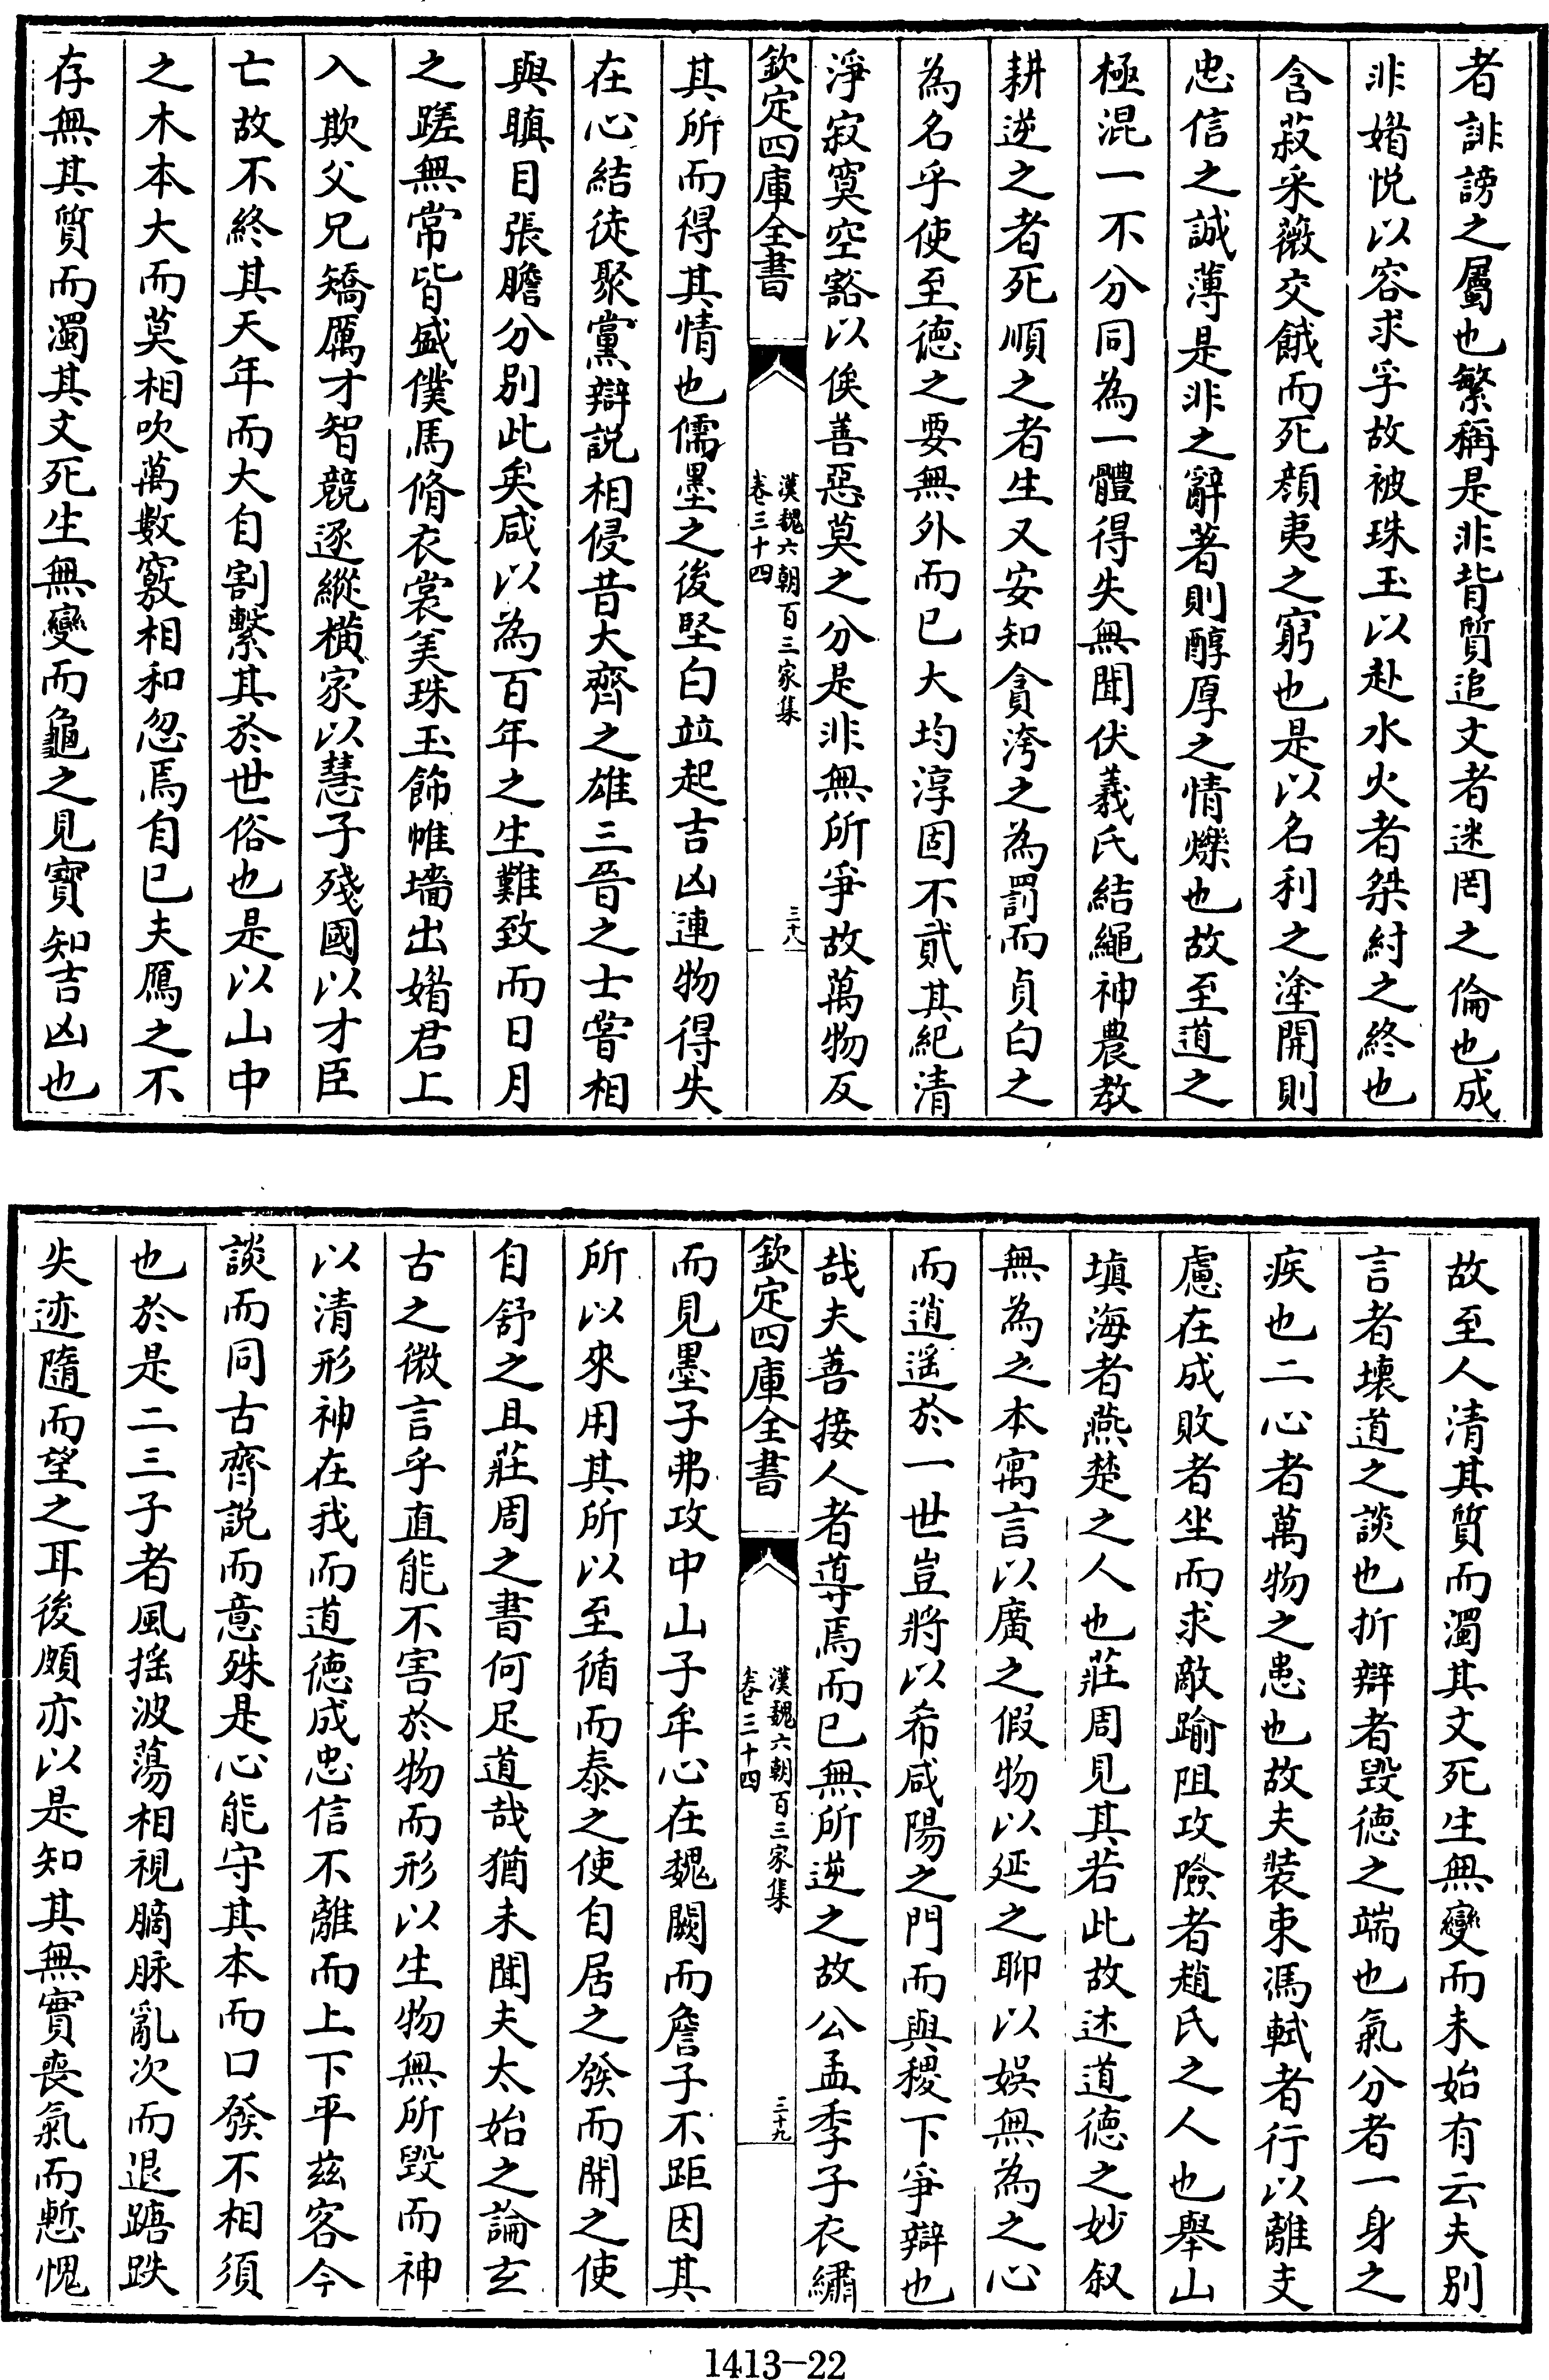 者誹謗之屬也繁稱是非背質追文者迷罔之倫也成
非媘悦以容求孚故被珠玉以赴水火者桀紂之終也
含菽采薇交餓而死顔夷之窮也是以名利之塗開則
忠信之誠薄是非之辭著則醇厚之情爍也故至道之
極混一不分同為一體得失無聞伏羲氏結繩神農教
耕逆之者死順之者生又安知貪洿之為罰而貞白之
為名乎使至徳之要無外而已大均淳固不貳其紀清
淨寂寞空豁以俟善惡莫之分是非無所爭故萬物反
欽定四庫全書
漢魏六朝百三家集
卷三十四
三十八
其所而得其情也儒墨之後堅白竝起吉凶連物得失
在心結徒聚黨辯説相侵昔大齊之雄三晉之士嘗相
與瞋目張膽分别此矣咸以為百年之生難致而日月
之蹉無常皆盛僕馬脩衣裳美珠玉飾帷墻出媘君上
入欺父兄矯厲才智競逐縱横家以慧子殘國以才臣
亡故不終其天年而大自割繫其於世俗也是以山中
之木本大而莫相吹萬數竅相和忽焉自已夫鴈之不
存無其質而濁其文死生無變而龜之見寳知吉凶也
故至人清其質而濁其文死生無變而未始有云夫别
言者壊道之談也折辯者毁徳之端也氣分者一身之
疾也二心者萬物之患也故夫装束馮軾者行以離支
慮在成敗者坐而求敵踰阻攻險者趙氏之人也舉山
填海者燕楚之人也莊周見其若此故述道徳之妙叙
無為之本寓言以廣之假物以延之聊以娯無為之心
而逍遥於一世豈將以希咸陽之門而與稷下爭辯也
哉夫善接人者尊焉而已無所逆之故公孟季子衣繡
欽定四庫全書
漢魏六朝百三家集
卷三十四
三十九
而見墨子弗攻中山子牟心在魏闕而詹子不距因其
所以來用其所以至循而泰之使自居之發而開之使
自舒之且莊周之書何足道哉猶未聞夫太始之論玄
古之微言乎直能不害於物而形以生物無所毁而神
以清形神在我而道徳成忠信不離而上下平兹客今
談而同古齊説而意殊是心能守其本而口發不相須
也於是二三子者風揺波蕩相視脼脉亂次而退踎跌
失迹隨而望之耳後頗亦以是知其無實喪氣而慙愧
1413-22